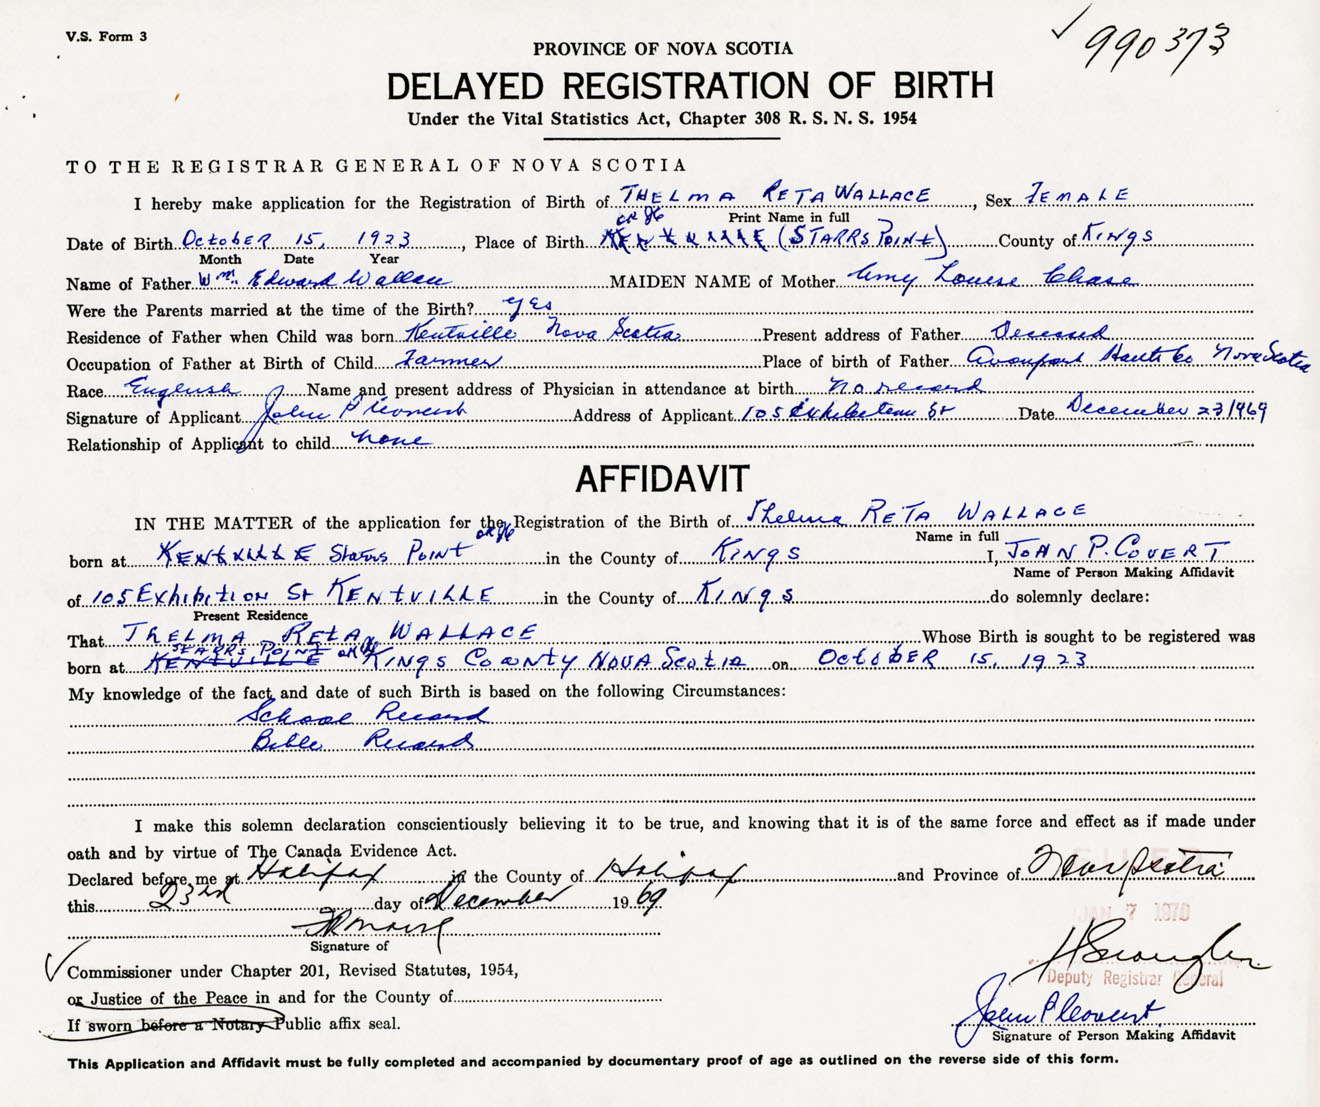 V.S. Form 3
990373
PROVINCE OF NOVA SCOTIA
DELAYED REGISTRATION OF BIRTH
Under the Vital Statistics Act, Chapter 308 R. S. N. S. 1954
TO THE REGISTRAR GENERAL OF NOVA SCOTIA
I hereby make application for the Registration of Birth of THELMA RETA WALLACE, Sex FEMALE
Print Name in full
Date of Birth October 15, 1923, Place of Birth KENTVILLE (STARRS POINT) County of KINGS
Month Date Year
Name of Father Wm. Edward Wallace MAIDEN NAME of Mother Amy Louise Chase
Were the Parents married at the time of the Birth? yes
Residence of Father when Child was born Kentville Nova Scotia Present address of Father Decesed
Occupation of Father at Birth of Child Farmer Place of birth of Father Avonport Hants Co Nova Scotia
Race English Name and present address of Physician in attendance at birth no record
Signature of Applicant John P Covert Address of Applicant 105 Exhibition St Date December 23 1969
Relationship of Applicant to child none
AFFIDAVIT
IN THE MATTER of the application for the Registration of the Birth of Thelma RETA WALLACE
Name in full
born at KENTVILLE Starrs POINT in the County of KINGS I, JOHN P. COVERT
Name of Person Making Affidavit
of 105 Exhibition St KENTVILLE in the County of KINGS do solemnly declare:
Present Residence
That THELMA RETA WALLACE Whose Birth is sought to be registered was
STARRS POINT
born at KENTVILLE KINGS COUNTY NOVA SCOTIA on OCTOBER 15, 1923
My knowledge of the fact and date of such Birth is based on the following Circumstances:
School Record
Bible Record
I make this solemn declaration conscientiously believing it to be true, and knowing that it is of the same force and effect as if made under
oath and by virtue of The Canada Evidence Act.
Declared before me at Halifax in the County of Halifax and Province of Nova Scotia
this 23rd day of December 1969
JAN 7 1970
Signature of
Commissioner under Chapter 201, Revised Statutes, 1954,
Deputy Registrar General
or Justice of the Peace in and for the County of
John P Covert
If sworn before a Notary Public affix seal.
Signature of Person Making Affidavit
This Application and Affidavit must be fully completed and accompanied by documentary proof of age as outlined on the reverse side of this form.